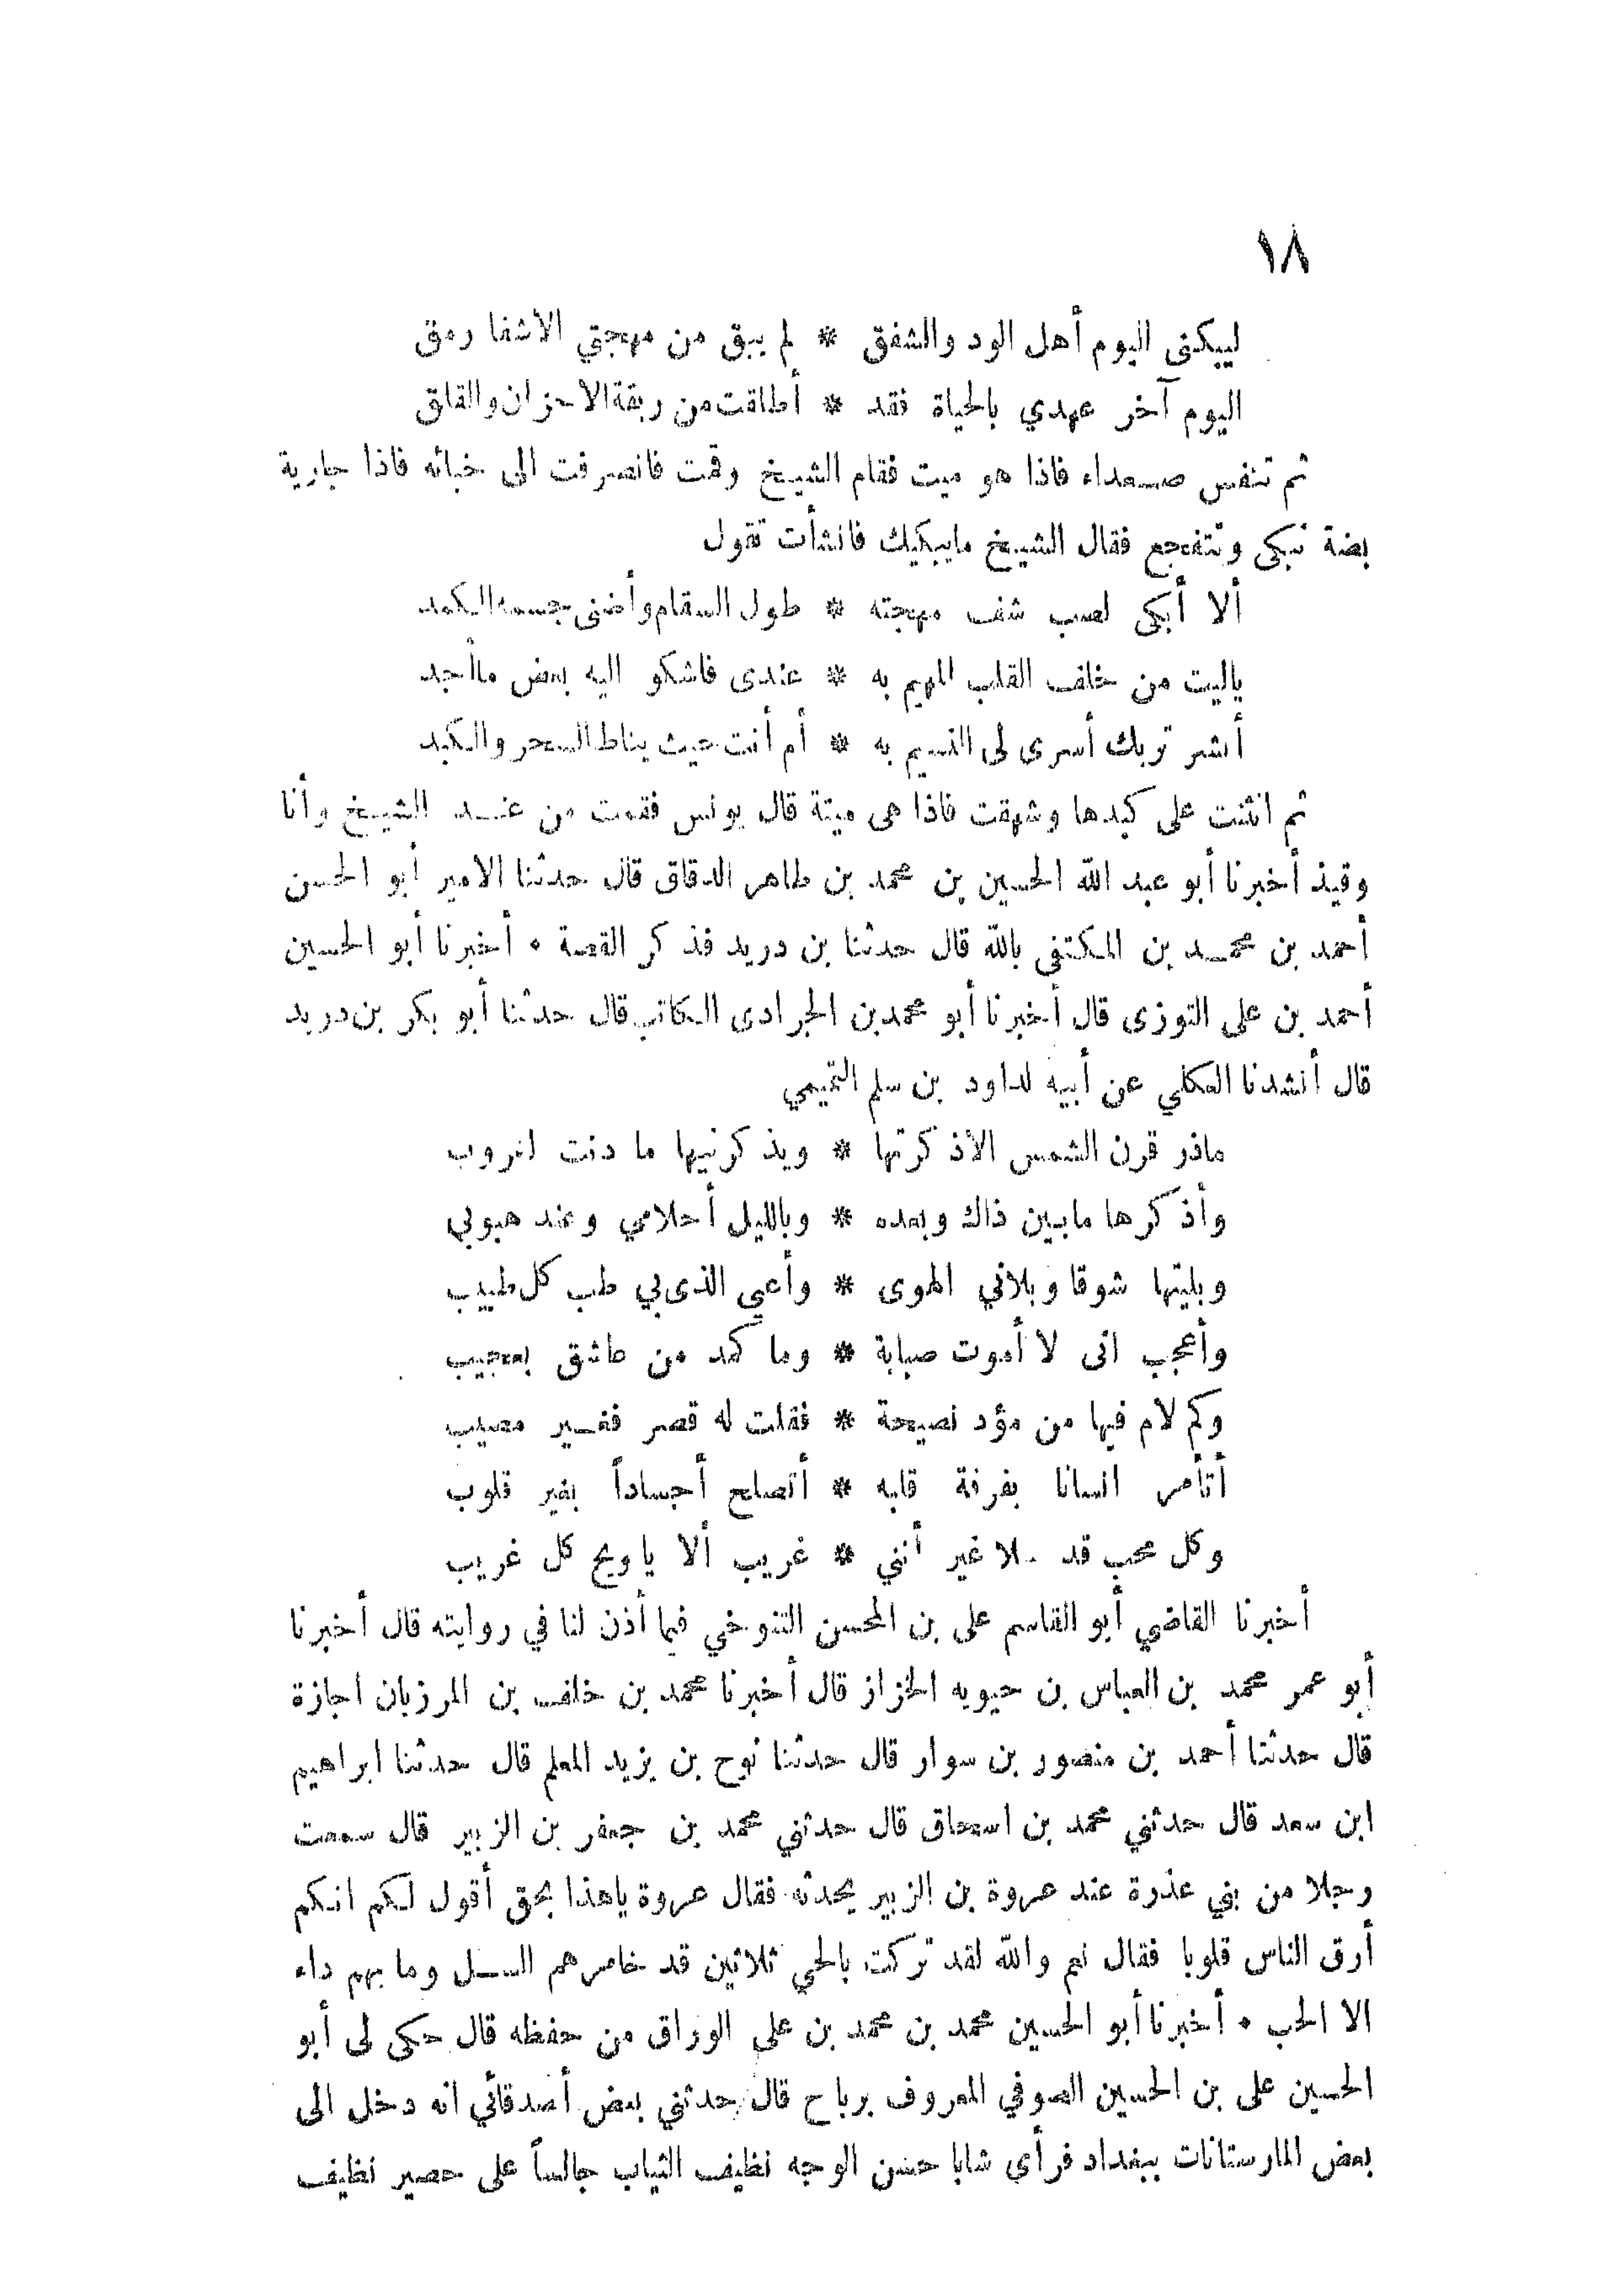 ١٨
ليبكنى اليوم أهل الود والشفق * لم يبق من مهجتي الاشفا رمق
اليوم آخر عهدي بالحياة فقد * أطلقت من ربقة الاحزان والقلق
ثم تنفس صعداء فاذا هو ميت فقام الشيخ وقمت فانصرفت الى خبائه فاذا جارية
بضة تبكى وتتفجع فقال الشيخ مايبكيك فانشأت تقول
ألا أبكى لصب شف مهجته * طول السقام وأضنى جسمه الكمد
ياليت من خلف القلب المهيم به * عندى فاشكو اليه بعض ماأجد
أنشر تربك أسرى لى النسيم به * أم أنت حيث يناط السحر والكبد
ثم انثنت على كبدها وشهقت فاذا هى ميتة قال يونس فقمت من عند الشيخ وأنا
وقيذ أخبرنا أبو عبد الله الحسين بن محمد بن طاهر الدقاق قال حدثنا الامير أبو الحسن
أحمد بن محمد بن المكتفى بالله قال حدثنا بن دريد فذكر القصة • أخبرنا أبو الحسين
أحمد بن على التوزى قال أخبرنا أبو محمد بن الجرادى الكاتب قال حدثنا أبو بكر بن دريد
قال أنشدنا العكلي عن أبيه لداود بن سلم التميمي
ماذر قرن الشمس الاذكرتها * ويذكرنيها ما دنت لغروب
وأذكرها مابين ذاك وبعده * وبالليل أحلامي وعند هبوبي
وبليتها شوقا وبلاني الهوى * وأعيى الذى بي طب كل طبيب
وأعجب انى لا أموت صبابة * وما كمد من عاشق بعجيب
وكم لام فيها من مؤد نصيحة * فقلت له قصر فغير مصيب
أتأمر انسانا بفرقة قلبه * أتصلح أجساداً بغير قلوب
وكل محب قد سلا غير أنني * غريب ألا ياويح كل غريب
أخبرنا القاضي أبو القاسم على بن المحسن التنوخي فيما أذن لنا في روايته قال أخبرنا
أبو عمر محمد بن العباس بن حيويه الخزاز قال أخبرنا محمد بن خلف بن المرزبان اجازة
قال حدثنا أحمد بن منصور بن سوار قال حدثنا نوح بن يزيد المعلم قال حدثنا ابراهيم
ابن سعد قال حدثني محمد بن اسحاق قال حدثني محمد بن جعفر بن الزبير قال سمعت
رجلا من بني عذرة عند عروة بن الزبير يحدثه فقال عروة ياهذا بحق أقول لكم انكم
أرق الناس قلوبا فقال نعم والله لقد تركت بالحي ثلاثين قد خامرهم السل وما بهم داء
الا الحب • أخبرنا أبو الحسين محمد بن محمد بن على الوراق من حفظه قال حكى لى أبو
الحسين على بن الحسين الصوفي المعروف برباح قال حدثني بعض أصدقائي انه دخل الى
بعض المارستانات ببغداد فرأى شابا حسن الوجه نظيف الثياب جالساً على حصير نظيف